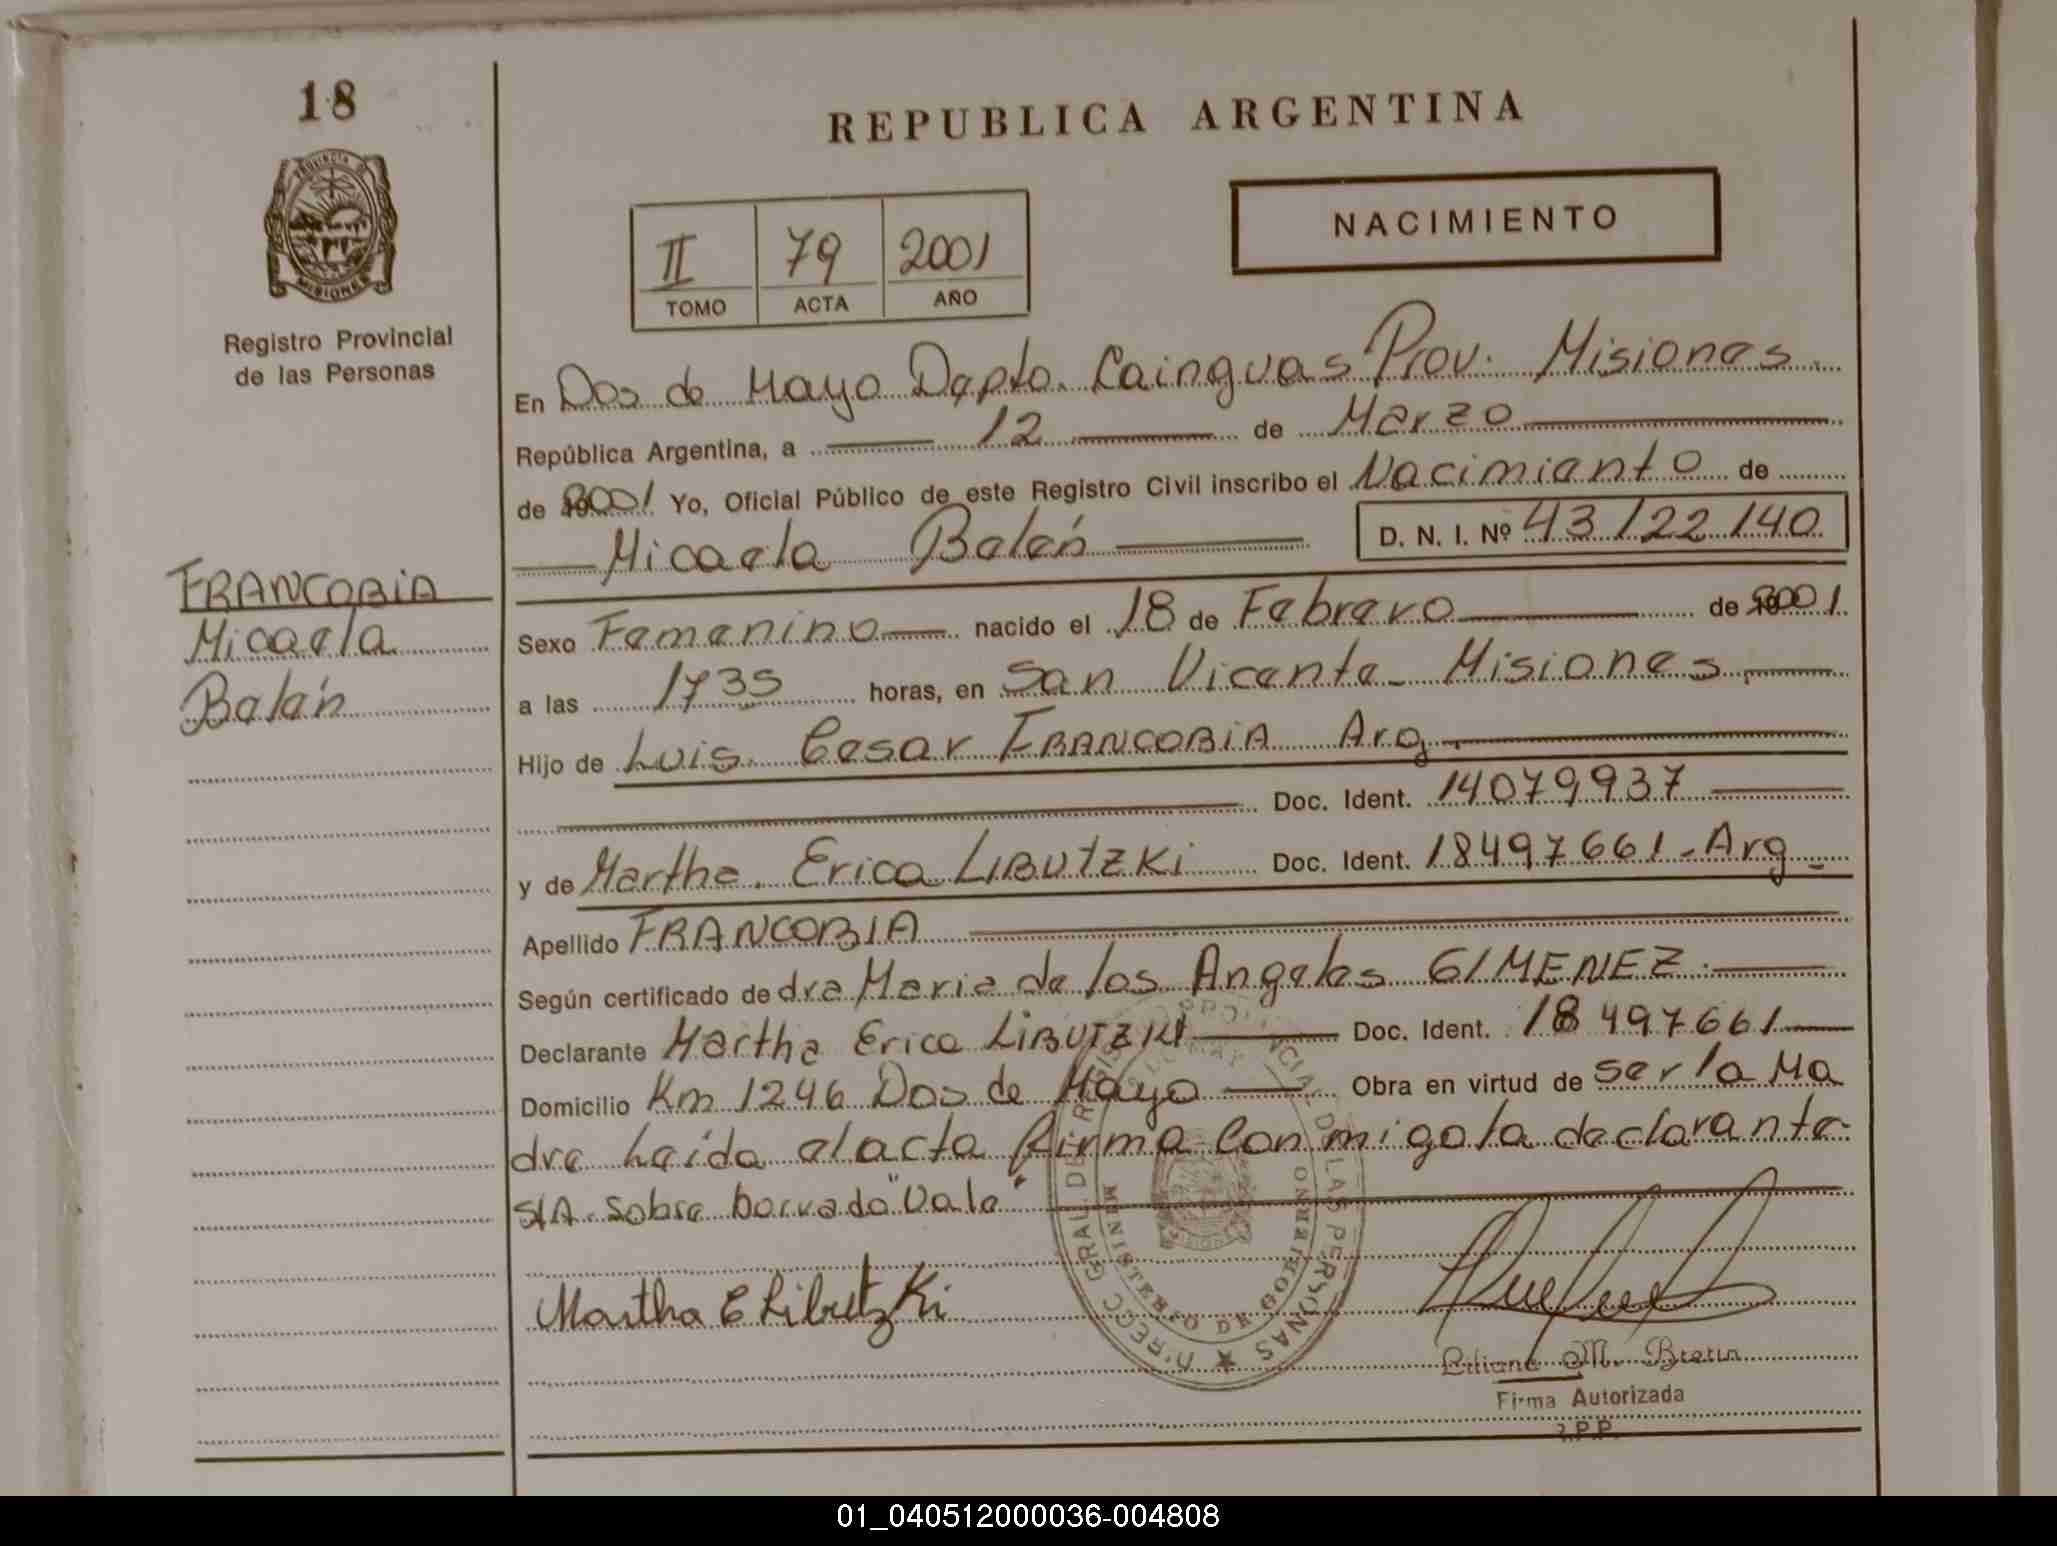 18
REPUBLICA ARGENTINA
PROVINCIA D
MISIONES
Registro Provincial
de las Personas
II 79 2001
TOMO ACTA AÑO
NACIMIENTO
En Dos de Mayo Depto. Cainguas Prov. Misiones
República Argentina, a 12 de Marzo
de 2001 Yo, Oficial Público de este Registro Civil inscribo el Nacimiento de
Micaela Belén D. N. I. Nº 43122140
FRANCOBIA
Micaela
Belén
Sexo Femenino nacido el 18 de Febrero de 2001
a las 1735 horas, en San Vicente - Misiones
Hijo de Luis Cesar FRANCOBIA Arg.
Doc. Ident. 14079937
y de Martha Erica LIBUTZKI Doc. Ident. 18497661 - Arg -
Apellido FRANCOBIA
Según certificado de dra Maria de los Angeles GIMENEZ
Declarante Martha Erica LIBUTZKI Doc. Ident. 18497661
Domicilio Km 1246 Dos de Mayo Obra en virtud de ser la Ma
dre Leída el acta firma Con migo la declarante
S/A. Sobre borrado "Vale"
Martha E Libutzki
MINISTERIO DE GOBIERNO
Firma Autorizada
R.P.P.
01_040512000036-004808